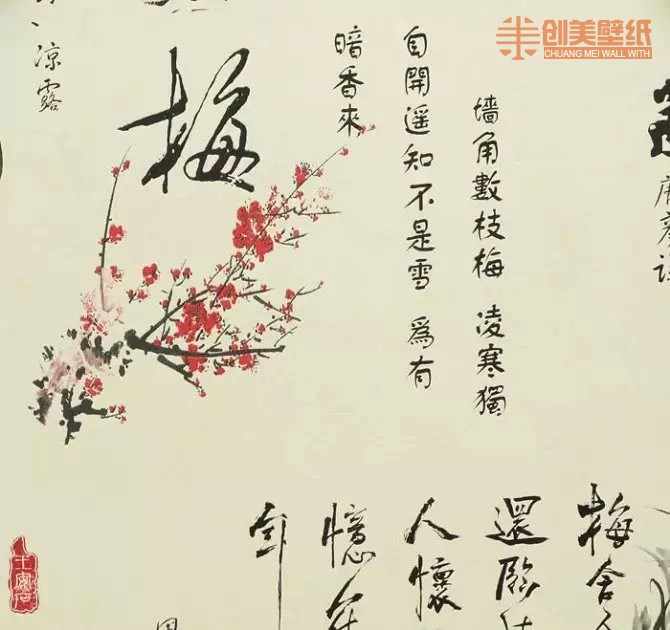 创美壁纸
CHUANG MEI WALL WITH
墙角數枝梅 凌寒獨
自開遥知不是雪 爲有
暗香來
梅
凉露
梅舍
還臨
人懷
憶